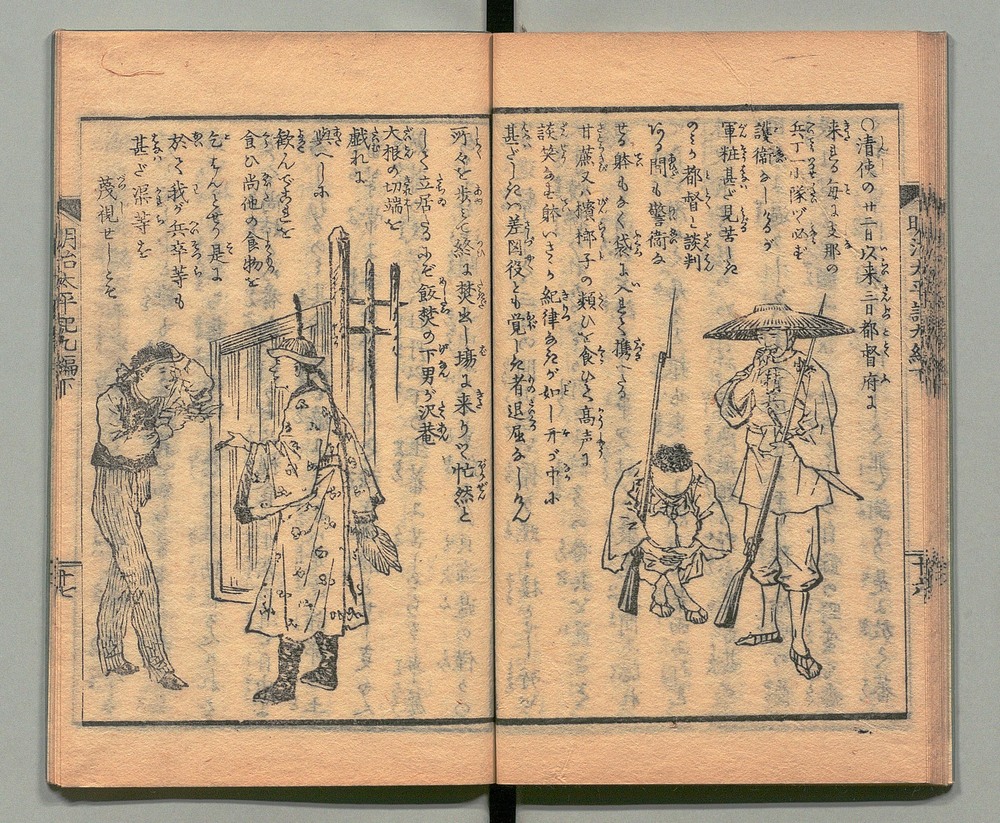 ○清使の廿二日以来三日都督府に
来る毎に支那の
兵丁一小隊づゝ必ず
護衛なし
軍粧甚ざ見苦しき
都督と談判
なる間も警衛な
せる躰もなく袋に入来る携へたる
甘蔗又ハ檳榔子の類ひを食ひ高声に
談笑なす躰いさゝか紀律なきが如し
甚ざしきハ差図役とも覚しき者退屈なしけん
所々を歩して終に焚出し場に来りて忙然と
して立居る飯焚の下男が沢菴
大根の切端を
戯れに
與へしに
歓んでこれを
食ひ尚他の食物を
乞はんとせり是に
於て我が兵卒等も
甚ざ渠等を
蔑視せしとぞ
明治太平記九編下
明治太平記九編下
十六
十七